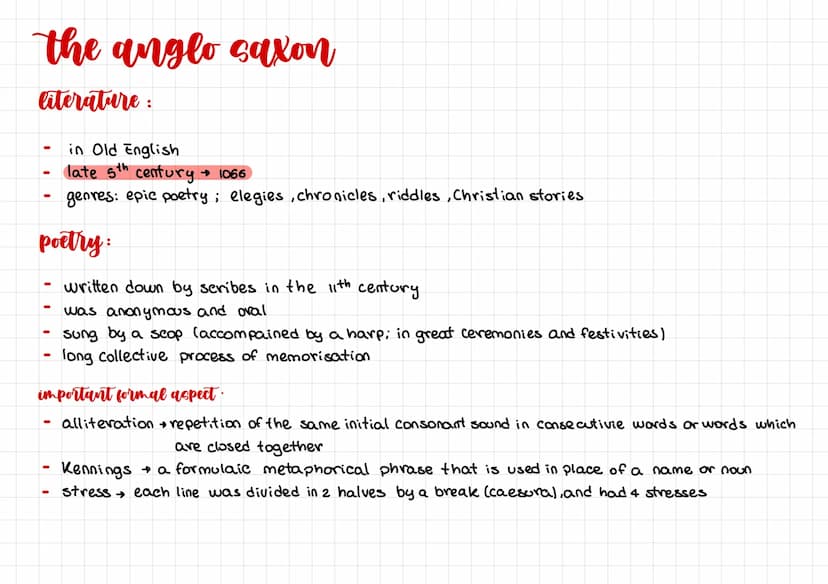 the anglo saxon
literature :
- in Old English
- late 5th century → 1066
- genres: epic poetry ; elegies , chronicles , riddles , Christian stories
poetry :
- written down by scribes in the 11th century
- was anonymous and oral
- sung by a scop (accompained by a harp; in great ceremonies and festivities)
- long collective process of memorisation
important formal aspect :
- alliteration → repetition of the same initial consonant sound in consecutive words or words which
are closed together
- Kennings → a formulaic metaphorical phrase that is used in place of a name or noun
- stress → each line was divided in 2 halves by a break (caesura), and had 4 stresses